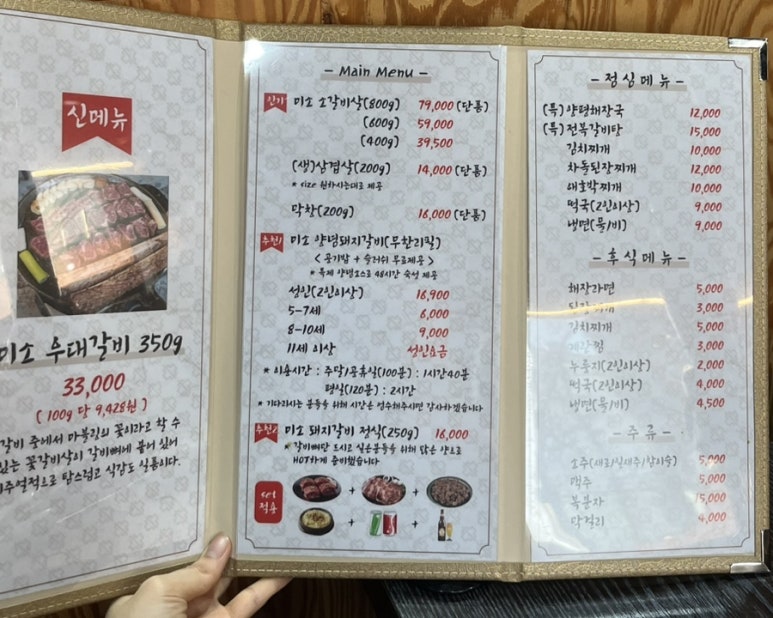 신메뉴
미소 우대갈비 350g
33,000
( 100g 당 9,428원 )
갈비 중에서 마블링의 꽃이라고 할 수
있는 꽃갈비살이 갈비뼈에 붙어 있어
탐스럽고 식감도 일품이다.
- Main Menu -
인기 미소 소갈비살(800g) 79,000 (단품)
(600g) 59,000
(400g) 39,500
(생)삼겹살(200g) 14,000 (단품)
* size 원하시는대로 제공
막창(200g) 16,000 (단품)
추천1 미소 양념돼지갈비(무한리필)
< 공기밥 + 슬러쉬 무료제공 >
* 특제 양념소스로 48시간 숙성 제공
성인(2인이상) 16,900
5-7세 6,000
8-10세 9,000
11세 이상 성인요금
* 이용시간 : 주말/공휴일(100분) : 1시간40분
평일(120분) : 2시간
* 기다리시는 분들을 위해 시간은 엄수해주시면 감사하겠습니다
추천2 미소 돼지갈비 정식(250g) 16,000
* 갈비뼈만 드시고 싶은분들을 위해 닭은 양으로
HOT하게 준비했습니다
set
적용
- 정식메뉴 -
(특)양평해장국 12,000
(특)전복갈비탕 15,000
김치찌개 10,000
차돌된장찌개 12,000
애호박찌개 10,000
떡국(2인이상) 9,000
냉면(물/비) 9,000
- 후식메뉴 -
해장라면 5,000
된장찌개 3,000
김치찌개 5,000
계란찜 3,000
누룽지(2인이상) 2,000
떡국(2인이상) 4,000
냉면(물/비) 4,500
- 주류 -
소주(새로/잎새주/참이슬) 5,000
맥주 5,000
복분자 15,000
막걸리 4,000